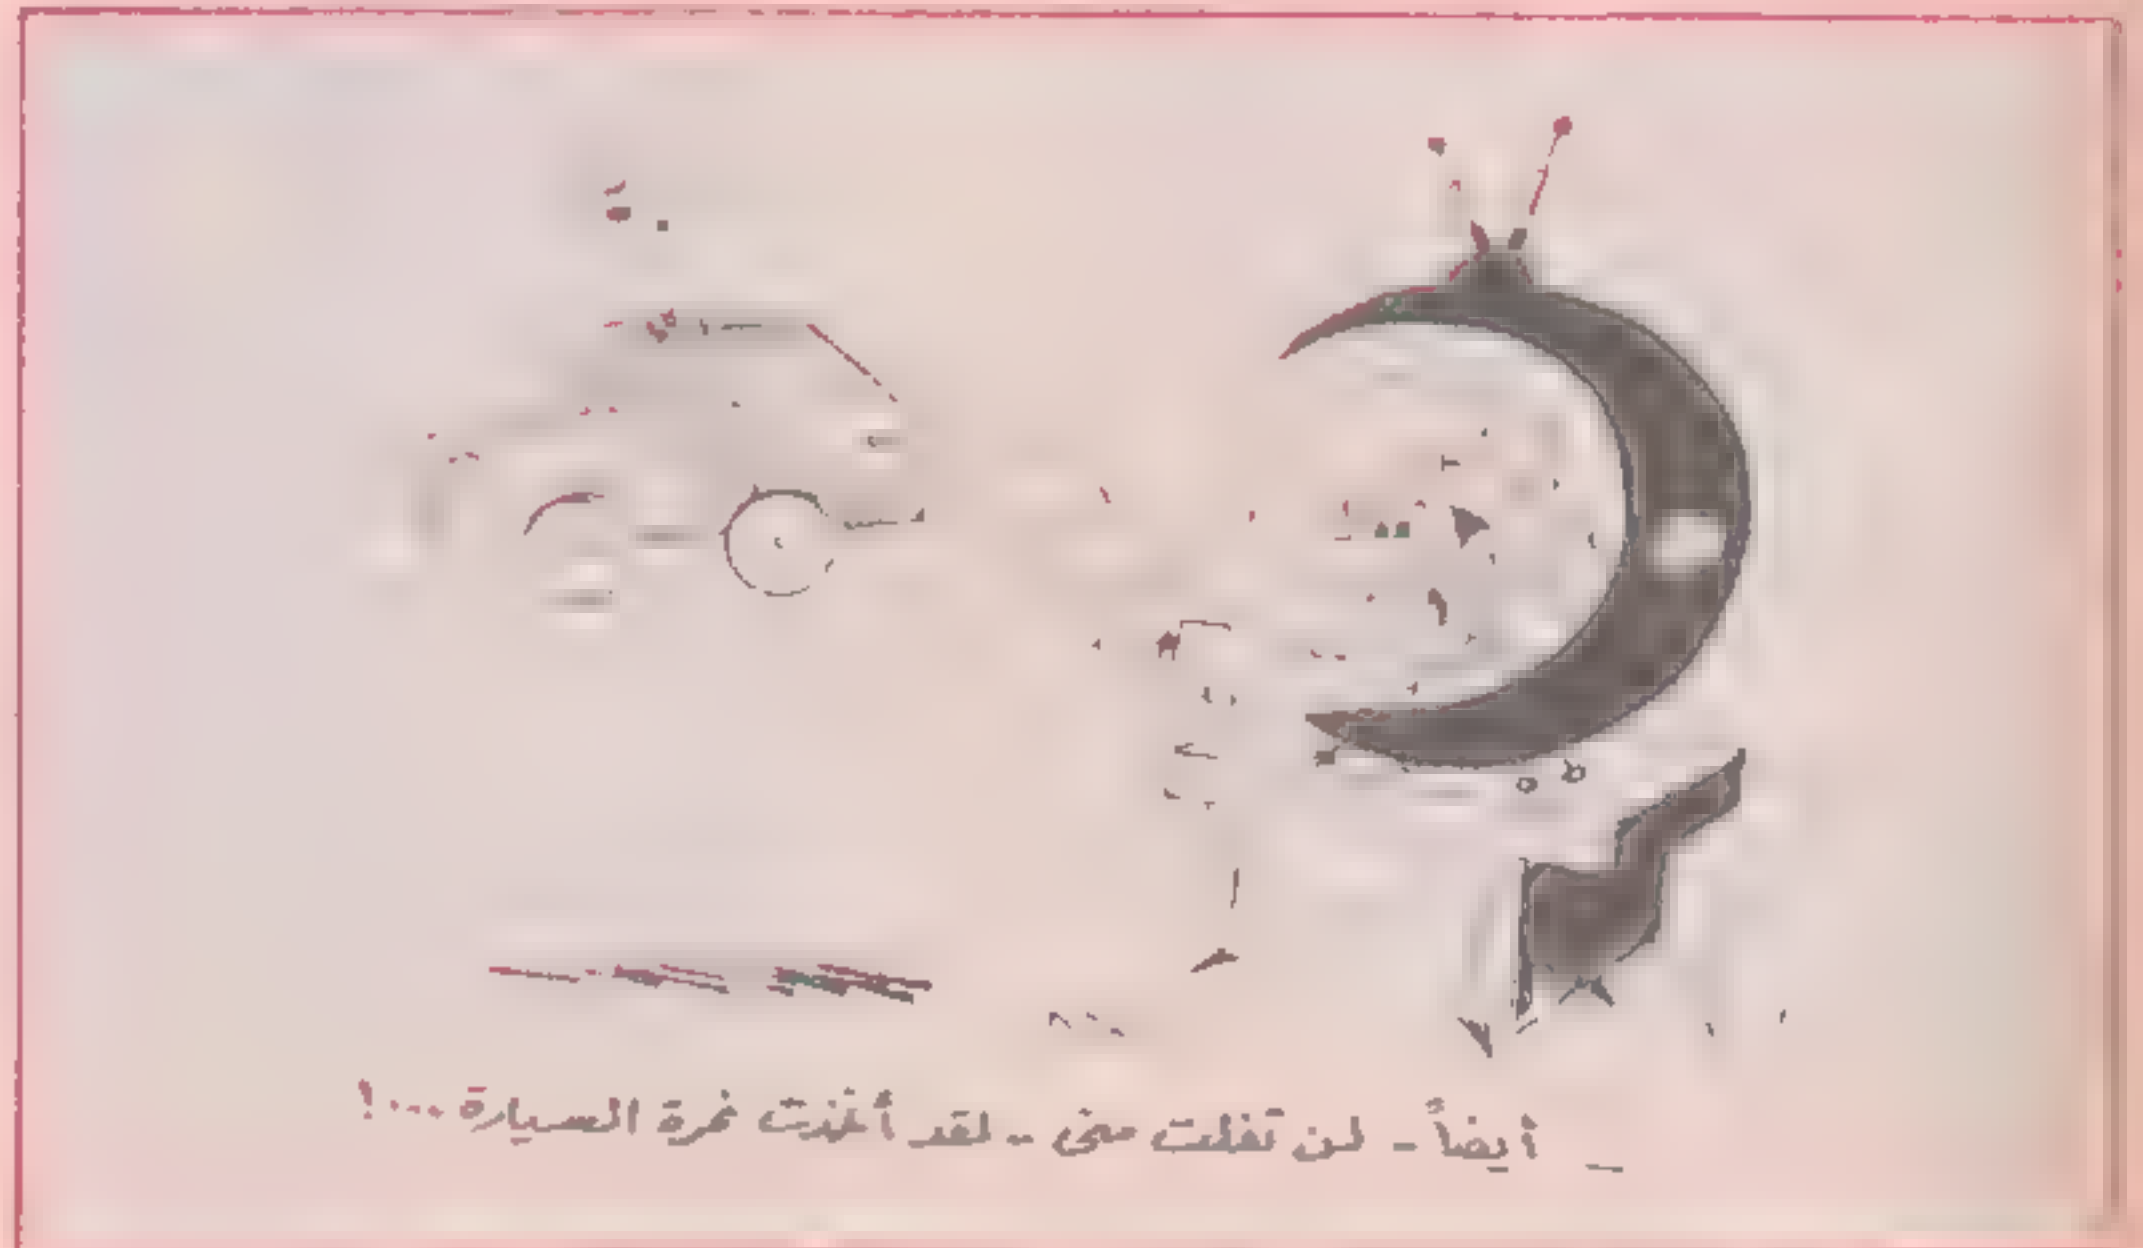 _ أيضاً - لن تفلت مني - لقد أخذت نمرة السيارة ...!